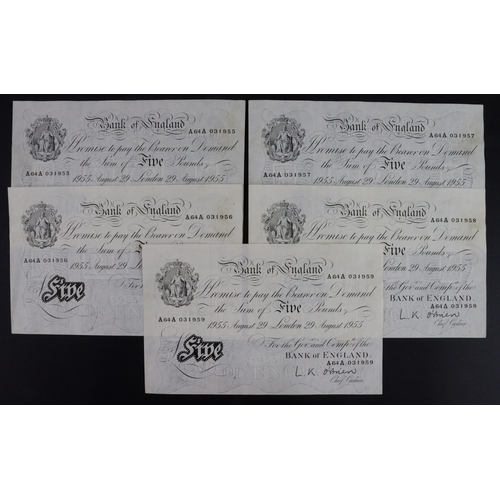 Bank of England
A64A 031955
I Promise to pay the Bearer on Demand
A64A 031955 the Sum of Five Pounds
1955 August 29 London 29 August 1955
Bank of England
A64A 031957
I Promise to pay the Bearer on Demand
A64A 031957 the Sum of Five Pounds
1955 August 29 London 29 August 1955
Bank of England
A64A 031956
I Promise to pay the Bearer on Demand
A64A 031956 the Sum of Five
1955 August 29
Five
For
Bank of England
A64A 031958
I Promise to pay the Bearer on Demand
Five Pounds
29 August 1955
Govr. and Compa. of the
BANK OF ENGLAND.
A64A 031958
L.K. O'Brien
Chief Cashier
Bank of England
A64A 031959
I Promise to pay the Bearer on Demand
A64A 031959 the Sum of Five Pounds
1955 August 29 London 29 August 1955
Five
For the Govr. and Compa. of the
BANK OF ENGLAND.
A64A 031959
L.K. O'Brien
Chief Cashier